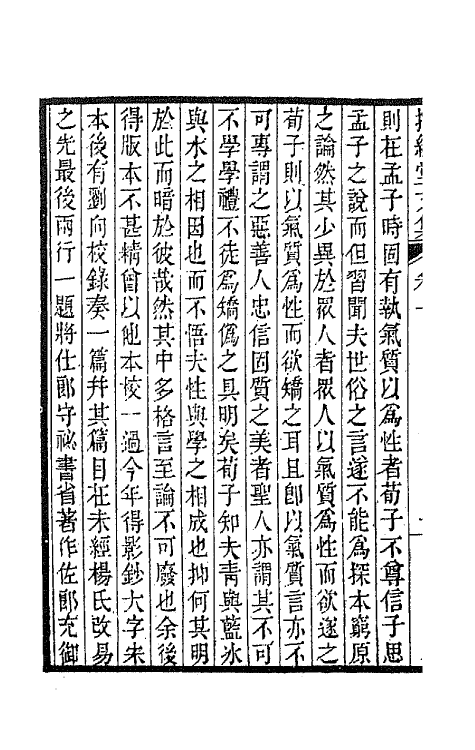 則在孟子時固有執氣質以爲性者荀子不尊信子思
孟子之說而但習聞夫世俗之言遂不能爲探本窮原
之論然其少異於眾人者眾人以氣質爲性而欲遂之
荀子則以氣質爲性而欲矯之耳且卽以氣質言亦不
可專謂之惡善人忠信固質之美者聖人亦謂其不可
不學學禮不徒爲矯僞之具明矣荀子知夫靑與藍冰
與水之相因也而不悟夫性與學之相成也抑何其明
於此而暗於彼哉然其中多格言至論不可廢也余後
得版本不甚精曾以他本校一過今年得影鈔大字宋
本後有劉向校錄奏一篇幷其篇目在未經楊氏改易
之先最後兩行一題將仕郎守祕書省著作佐郎充御